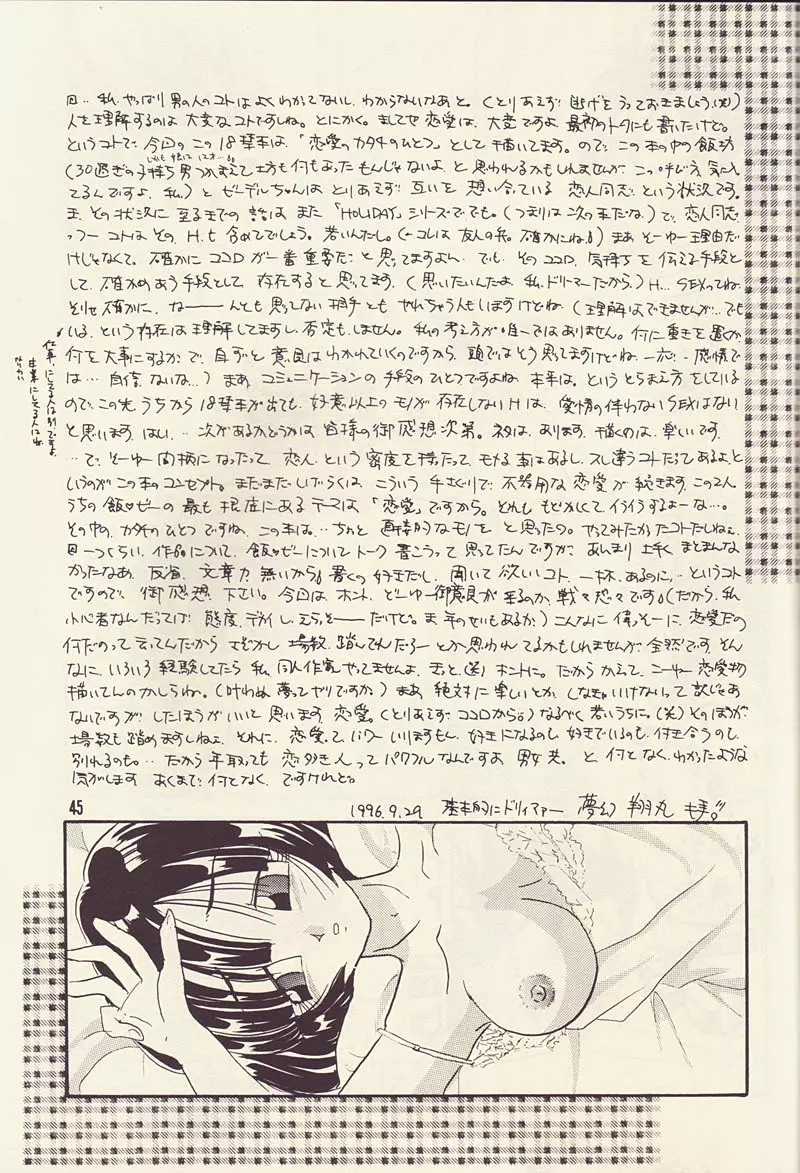 回‥私、やっぱり男の人のコトはよくわかってないし、わからないなあと。(とりあえず 逃げをうっておきましょう、(笑))
人を理解するのは 大変なコトですしね。とにかく。ましてや 恋愛は、大変ですよ、最初のトークにも書いたけど。
というコトで、今回の この18禁本は、「恋愛のカタチのひとつ」として 描いてます。ので、この本の中の飯坊
(30過ぎの子持ち男つかまえて 坊も何もあったもんじゃないよ、と 思われるかもしれませんが、この呼び方、気に入っ
てるんですよ、私。)と ゼーデルちゃんは とりあえず 互いを 想い合っている 恋人同志、という状況です。
ま、その状況に 至るまでの 話は また 「HOLIDAY」シリーズででも。(つまりは次の本だな。)で、恋人同志
っつーコトは その、H、も 含めてでしょう。若いんだし。(←コレは 友人の弁。確かにね。)まあ そーゆー理由だ
けじゃなくて、確かに ココロが一番 重要だ と思ってますよ‥‥でも、その ココロ、気持ちを 伝える手段と
して、確かめあう手段として 存在すると 思ってます。(思いたいんだよ、私、ドリーマーだから。)H… SEXってね。
そりゃ 確かに、な――んとも 思ってない 相手とも やれちゃう人も いますけどね、(理解はできませんが… でも
いる、という存在は 理解してますし、否定も しません。私の考え方が 唯一ではありません。何に重きを 置くか
何を大事にするか で、自ずと 意見は わかれていくのですから、頭ではそう思ってますけどね、一応‥ 感情で
は… 自信、ないな…)まあ コミュニケーションの 手段のひとつですよね、本来は。というとらえ方をしている
ので、この先、うちから 18禁本が出ても、好意以上のモノが 存在しないHは、愛情の伴わないSEXはない
と思います。はい。… 次があるかどうかは 皆様の御感想次第。ネタは、あります。描くのは、楽しいです。
…で、そーゆー間柄になったって 恋人 という 密度を 持ったって、モメる事はあるし、スレ違うコトだってあるよ、と
いうのが この本のコンセプト。まだまだ しばらくは こういう 手さぐりで、不器用な 恋愛が 続きます。この2人
うちの飯♡ゼーの 最も 根底にある テーマは 「恋愛」ですから。とれも もどかしくて イライラするよーな…。
その中の、カタチのひとつ ですね、この本は…。ちょっと
回一つくらい、作品について、飯♡ゼーについてトーク 書こうって 思ってたんですが、あんまり 上手く まとまんな
かったなあ。反省。文章力、無いから。書くの 好きだし、聞いて 欲しいコト、一杯、あるのに‥というコト
ですので、御感想、下さい。今回は ホント、どーゆー御意見が 来るのか、戦々恐々です。(だから、私、
小心者なんだってば。態度、デカイし、えらそーだけど。ま、年のせいもあるか。)こんなに 偉そーに、恋愛だの
何だのって 言ってんだから さぞかし 場数、踏んでんだろー とか 思われ てるかもしれませんが、全然です。そん
なに、いろいろ 経験してたら 私、同人作家 やってませんよ、きっと、(笑)ホントに。だから かえって、こーゆー 恋愛物
描いてんのかしらね。(叶わぬ 夢ってヤツですか。)まあ 絶対に 楽しいとか、しなきゃいけないって 訳じゃあ
ないですが、したほうがいいと 思います、恋愛。(とりあえず ココロから。)なるべく 若いうちに。(笑)そのほうが、
場数も 踏めますしねえ。それに、恋愛って、パワー いりますもん。好きになるのも、好きでいるのも、付き合うのも、
別れるのも。‥だから 年取っても 恋多き人って パワフルなんですよ 男女共。と 何となく、わかったような
気がします。あくまで 何となく、ですけれど。
仕事にしてる人は別ですよ
45
1996.9.29 基本的にドリィマァー 夢幻 翔丸